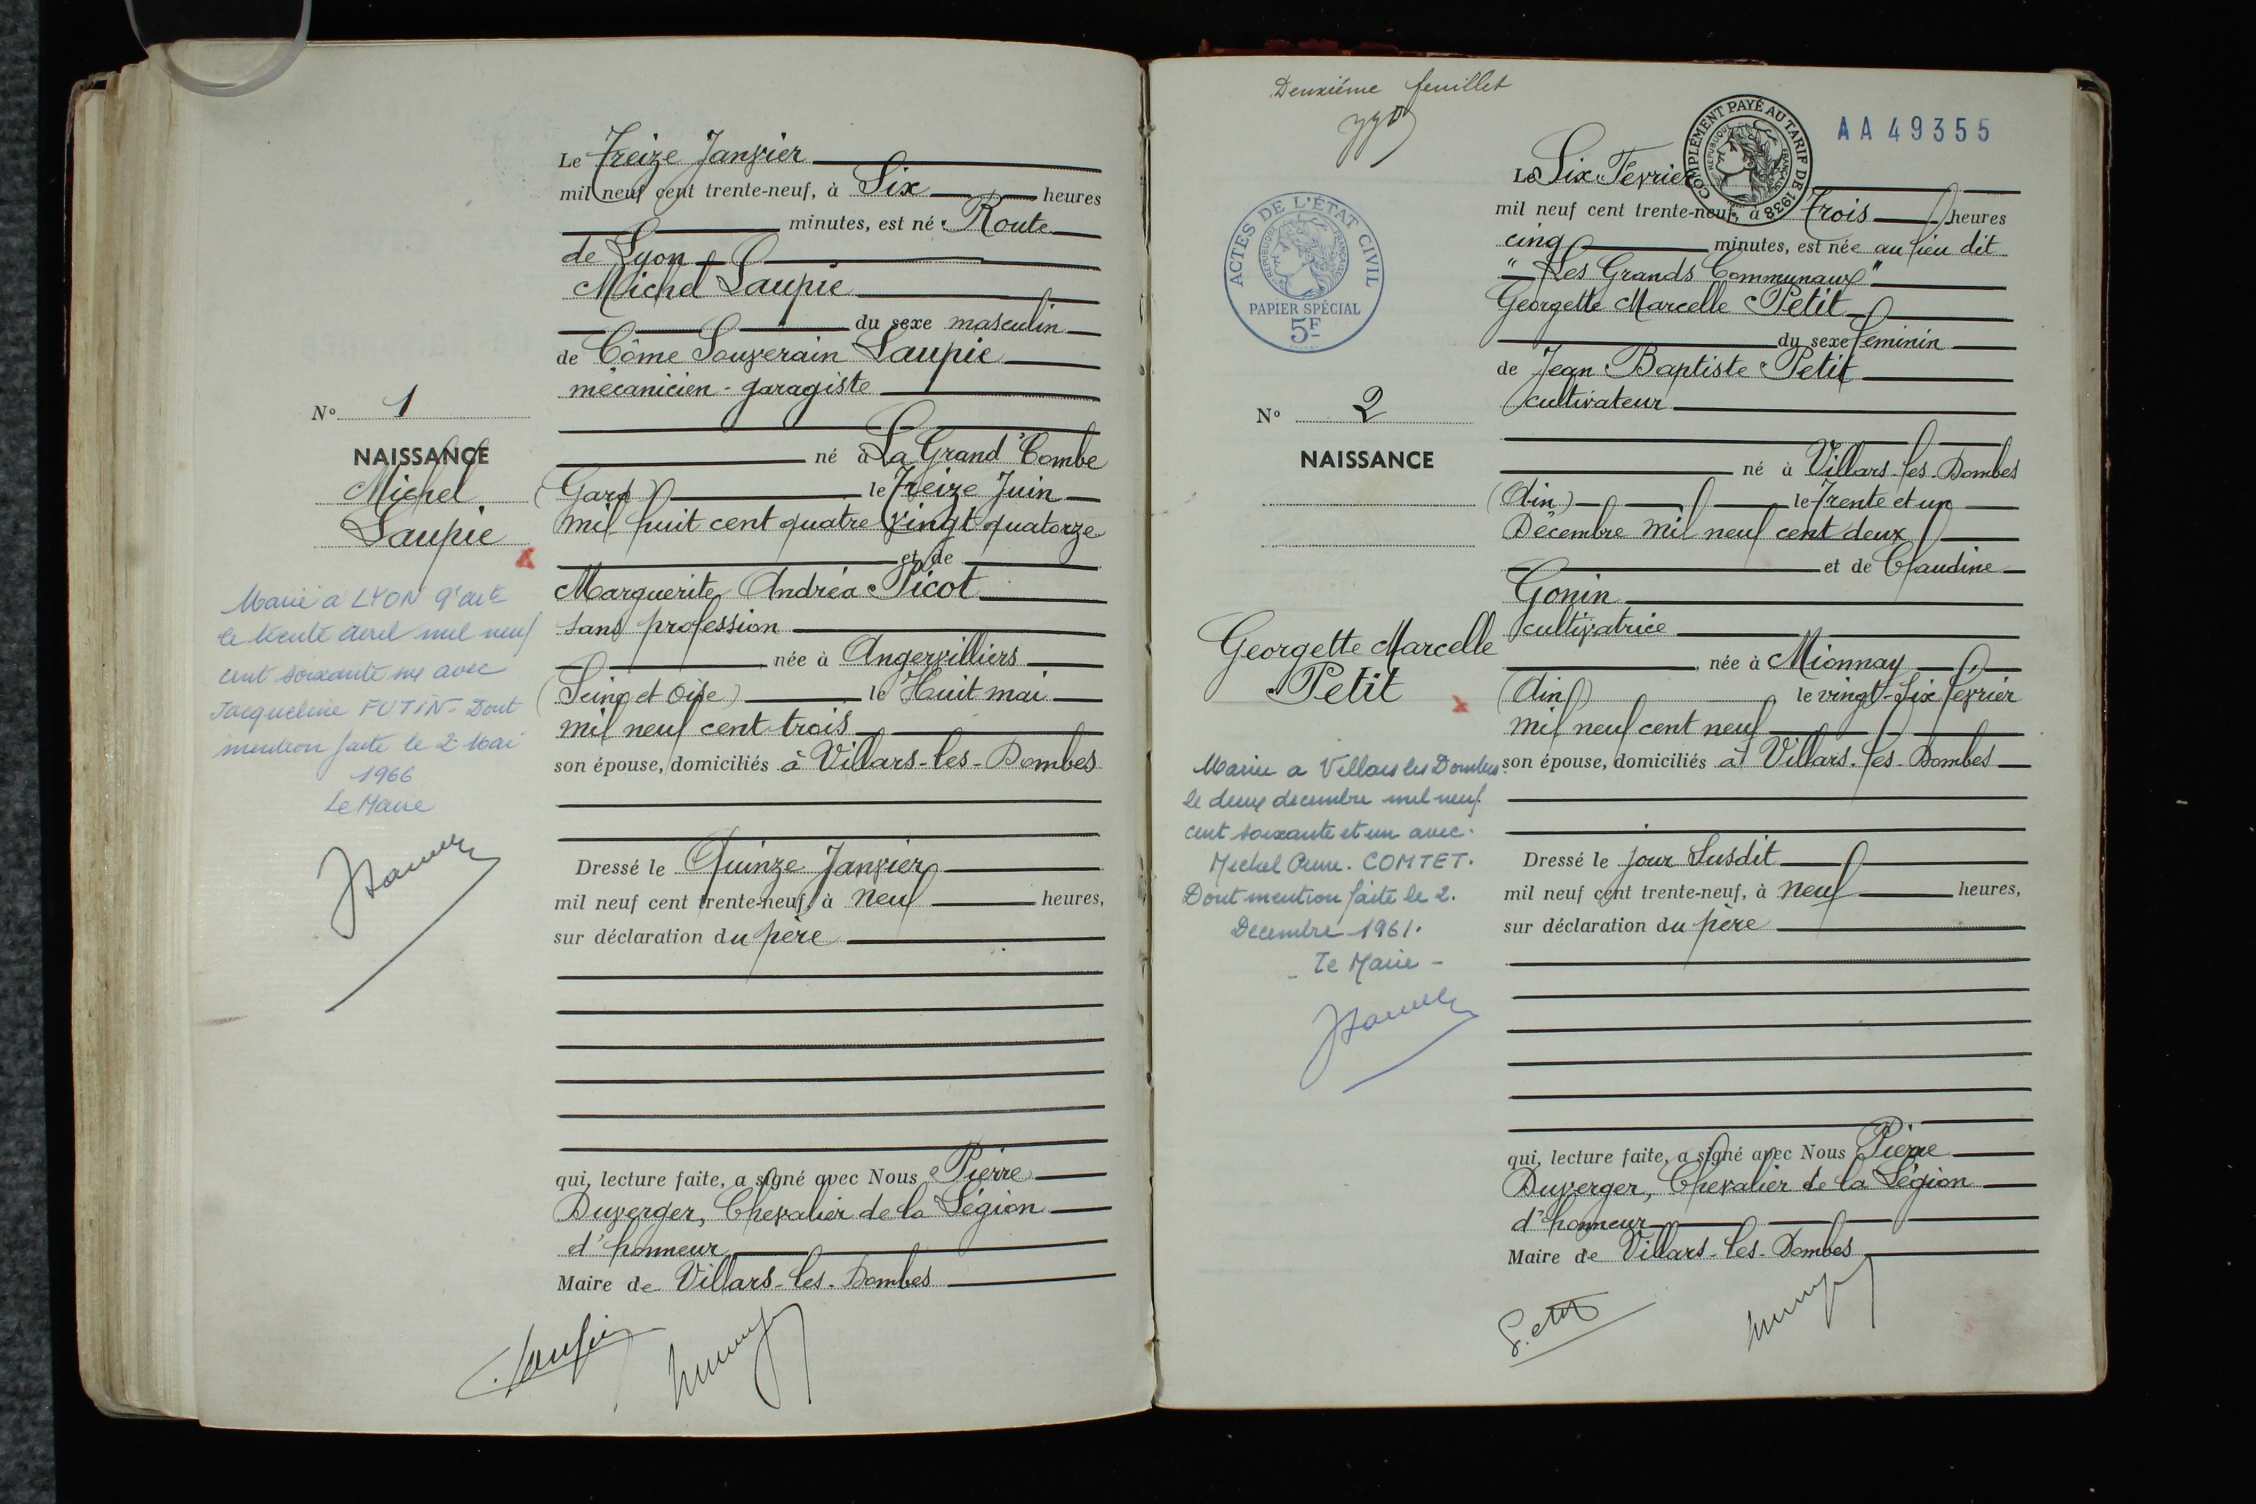 Le Treize Janvier
mil neuf cent trente-neuf, à Six heures
minutes, est né Route
de Lyon
Michel Laupie
du sexe masculin
de Côme Souverain Laupie
mécanicien - garagiste
né à La Grand'Combe
(Gard) le Treize Juin
mil huit cent quatre vingt quatorze
et de
Marguerite Andréa Picot
sans profession
née à Angervilliers
(Seine et Oise) le Huit mai
mil neuf cent trois
son épouse, domiciliés à Villars-les-Dombes
Dressé le Quinze Janvier
mil neuf cent trente-neuf, à neuf heures,
sur déclaration du père
qui, lecture faite, a signé avec Nous Pierre
Duverger, Chevalier de la Légion
d'honneur
Maire de Villars-les-Dombes
Nº 1
NAISSANCE
Michel
Laupie
Marié à LYON 9e art
le trente avril mil neuf
cent soixante six avec
Jacqueline FUTIN - Dont
mention faite le 2 Mai
1966
Le Maire
Deuxième feuillet
AA49355
COMPLÉMENT PAYÉ AU TARIF DE 1938
RÉPUBLIQUE FRANÇAISE
ACTES DE L'ÉTAT CIVIL
RÉPUBLIQUE FRANÇAISE
PAPIER SPÉCIAL
5F
Le Six Février
mil neuf cent trente-neuf, à Trois heures
cinq minutes, est née au lieu dit
"Les Grands Communaux"
Georgette Marcelle Petit
du sexe féminin
de Jean Baptiste Petit
cultivateur
né à Villars-les-Dombes
(Ain) le Trente et un
Décembre mil neuf cent deux
et de Claudine
Gonin
cultivatrice
née à Mionnay
(Ain) le vingt-six février
mil neuf cent neuf
son épouse, domiciliés à Villars-les-Dombes
Dressé le jour susdit
mil neuf cent trente-neuf, à neuf heures,
sur déclaration du père
qui, lecture faite, a signé avec Nous Pierre
Duverger, Chevalier de la Légion
d'honneur
Maire de Villars-les-Dombes
Nº 2
NAISSANCE
Georgette Marcelle
Petit
Mariée à Villars les Dombes
le deux décembre mil neuf
cent soixante et un avec
Michel COMTET.
Dont mention faite le 2.
Decembre 1961.
- Le Maire -